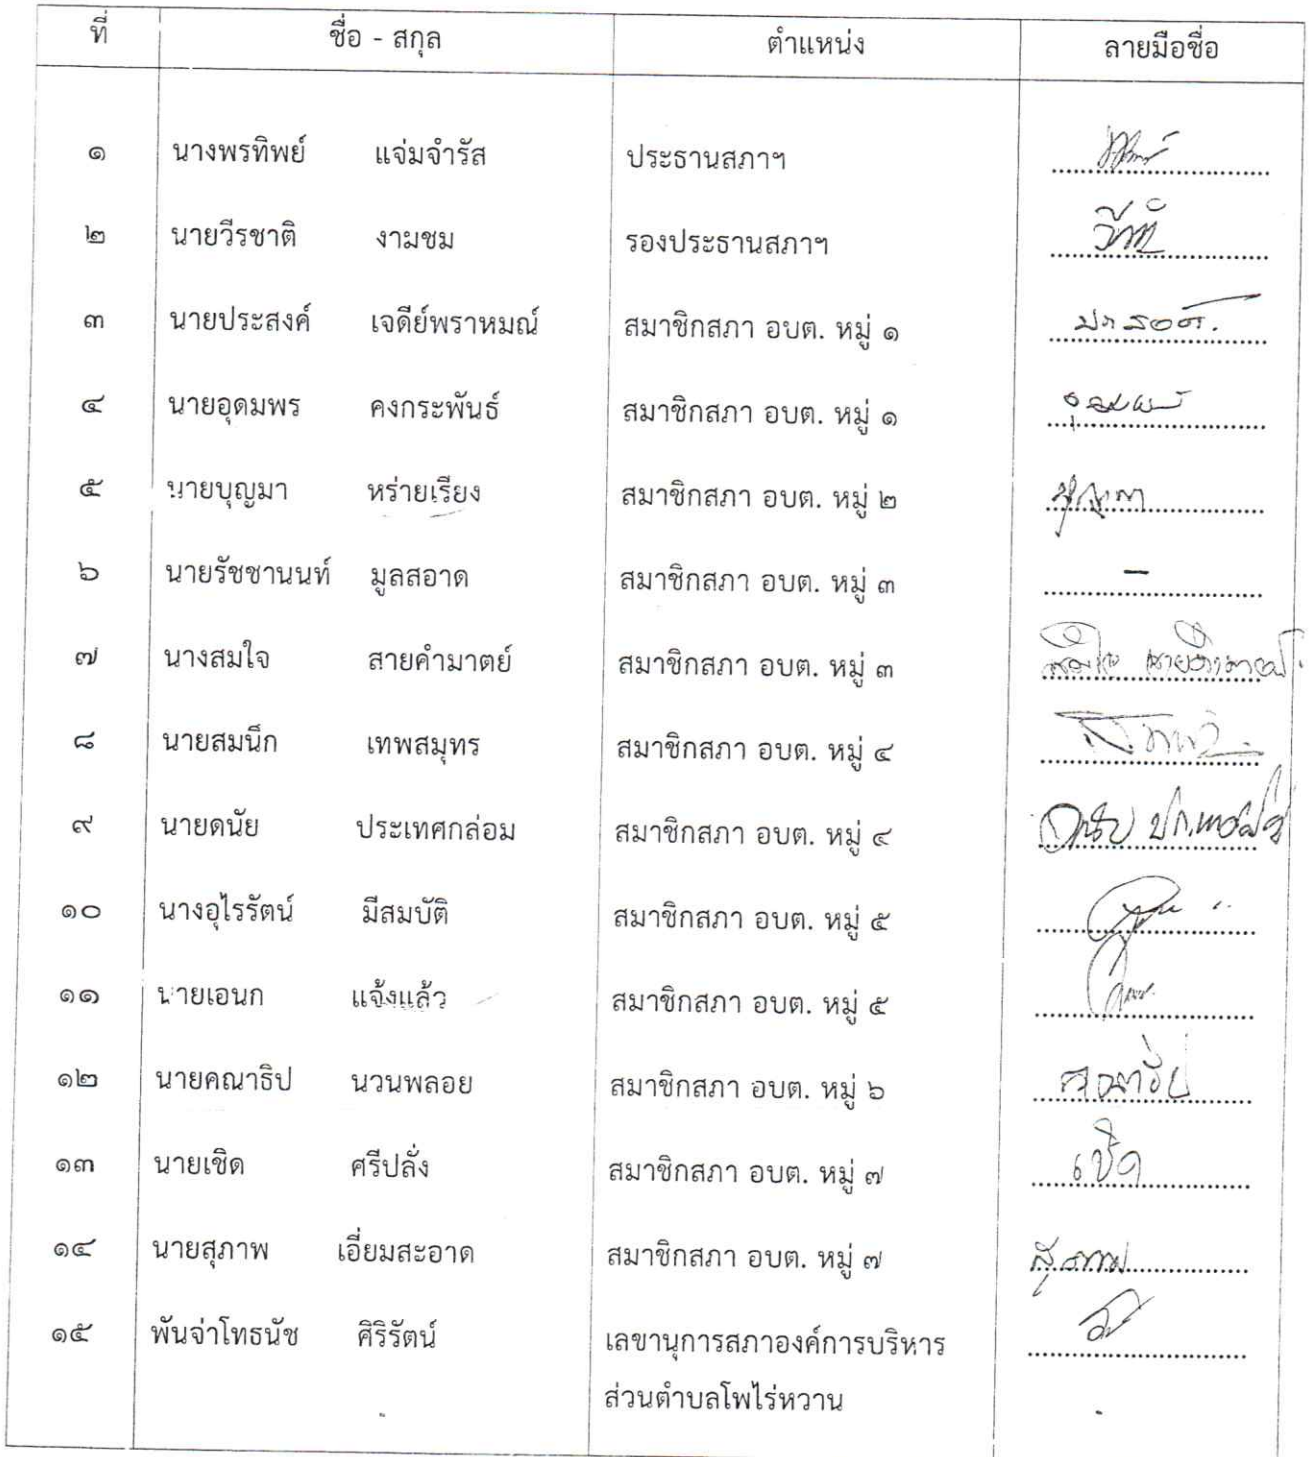 ที่ ชื่อ - สกุล ตำแหน่ง ลายมือชื่อ
๑ นางพรทิพย์ แจ่มจำรัส ประธานสภาฯ
๒ นายวีรชาติ งามชม รองประธานสภาฯ
๓ นายประสงค์ เจดีย์พราหมณ์ สมาชิกสภา อบต. หมู่ ๑
๔ นายอุดมพร คงกระพันธ์ สมาชิกสภา อบต. หมู่ ๑
๕ นายบุญมา หร่ายเรียง สมาชิกสภา อบต. หมู่ ๒ บุญมา
๖ นายรัชชานนท์ มูลสอาด สมาชิกสภา อบต. หมู่ ๓ -
๗ นางสมใจ สายคำมาตย์ สมาชิกสภา อบต. หมู่ ๓ สมใจ สายคำมาตย์
๘ นายสมนึก เทพสมุทร สมาชิกสภา อบต. หมู่ ๔
๙ นายดนัย ประเทศกล่อม สมาชิกสภา อบต. หมู่ ๔ ดนัย
๑๐ นางอุไรรัตน์ มีสมบัติ สมาชิกสภา อบต. หมู่ ๕
๑๑ นายเอนก แจ้งแล้ว สมาชิกสภา อบต. หมู่ ๕
๑๒ นายคณาธิป นวนพลอย สมาชิกสภา อบต. หมู่ ๖ คณาธิป
๑๓ นายเชิด ศรีปลั่ง สมาชิกสภา อบต. หมู่ ๗ เชิด
๑๔ นายสุภาพ เอี่ยมสะอาด สมาชิกสภา อบต. หมู่ ๗ สุภาพ
๑๕ พันจ่าโทธนัช ศิริรัตน์ เลขานุการสภาองค์การบริหาร
ส่วนตำบลโพไร่หวาน